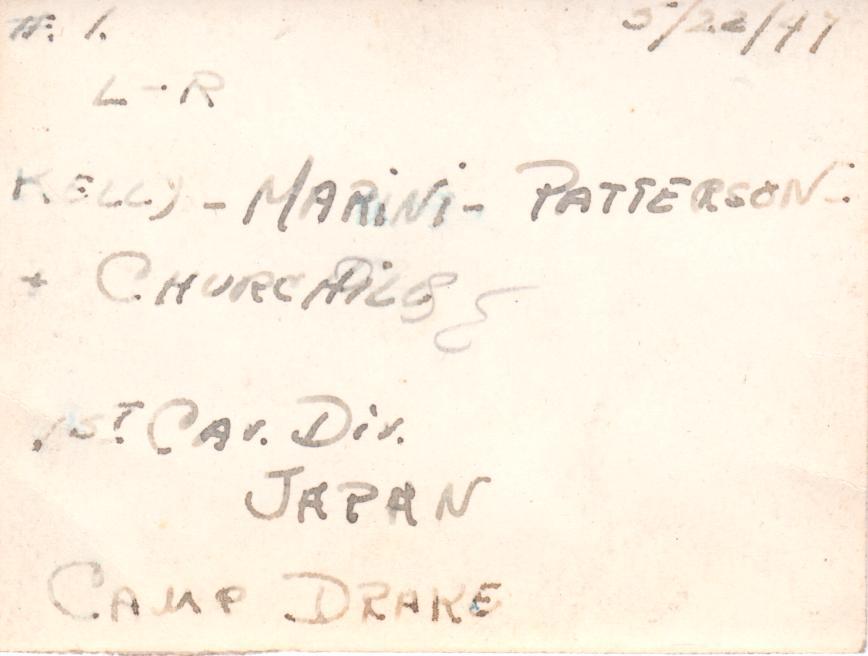 #. 1. 5/22/47
L-R
KELLY - MARINI - PATTERSON -
+ CHURCHILL
1ST CAV. DIV.
JAPAN
CAMP DRAKE